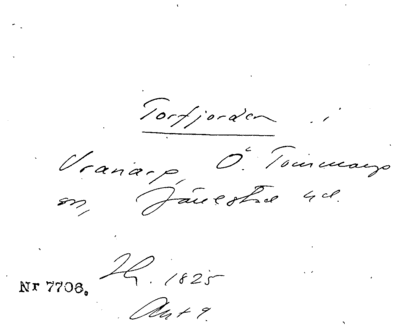 Torfjorden i
Vranarp, Ö. Tommarps
sn, Järrestad hd.
Nr 7706. 1825
Akt 9.